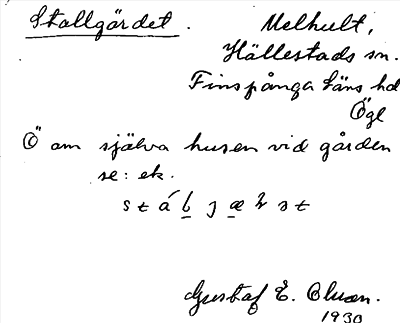 Stallgärdet.
Melhult,
Hällestads sn.
Finspånga läns hd
Ögl
Ö om själva husen vid gården
se: ek.
Gustaf E. Olsson.
1930